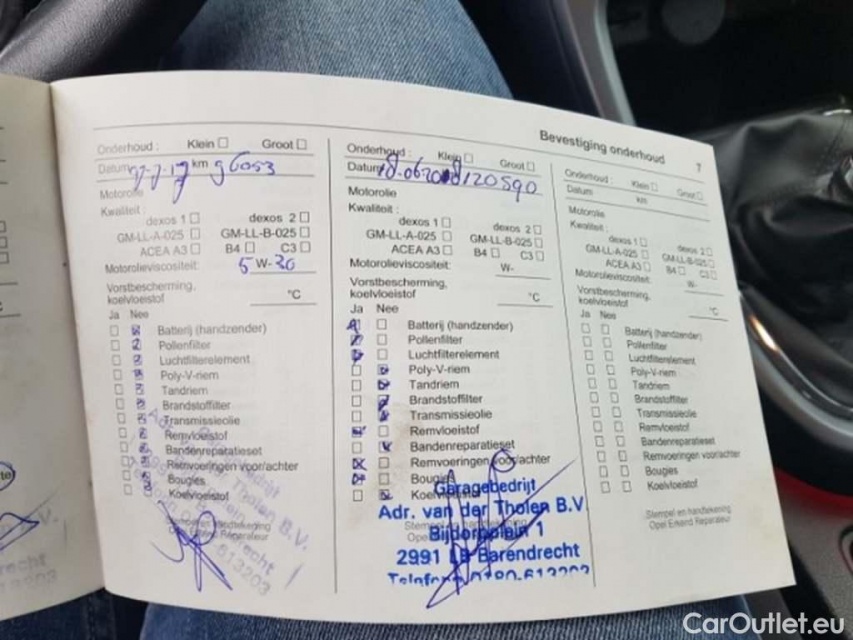 Bevestiging onderhoud 7
Onderhoud : Klein Groot
Datum 17-7-17 km 96053
Motorolie
Kwaliteit :
dexos 1 dexos 2
GM-LL-A-025 GM-LL-B-025
ACEA A3 B4 C3
Motorolieviscositeit: 5 W- 30
Vorstbescherming,
koelvloeistof °C
Ja Nee
Batterij (handzender)
Pollenfilter
Luchtfilterelement
Poly-V-riem
Tandriem
Brandstoffilter
Transmissieolie
Remvloeistof
Bandenreparatieset
Remvoeringen voor/achter
Bougies
Koelvloeistof
Stempel en handtekening
Opel Erkend Reparateur
Onderhoud : Klein Groot
Datum 18-062018 120590
Motorolie
Kwaliteit :
dexos 1 dexos 2
GM-LL-A-025 GM-LL-B-025
ACEA A3 B4 C3
Motorolieviscositeit: W-
Vorstbescherming,
koelvloeistof °C
Ja Nee
Batterij (handzender)
Pollenfilter
Luchtfilterelement
Poly-V-riem
Tandriem
Brandstoffilter
Transmissieolie
Remvloeistof
Bandenreparatieset
Remvoeringen voor/achter
Bougies
Koelvloeistof
Garagebedrijf
Adr. van der Tholen B.V.
Bijdorpplein 1
2991 Barendrecht
Telefoon 0180-613203
Onderhoud : Klein Groot
Datum km
Motorolie
Kwaliteit :
dexos 1 dexos 2
GM-LL-A-025 GM-LL-B-025
ACEA A3 B4 C3
Motorolieviscositeit: W-
Vorstbescherming,
koelvloeistof °C
Ja Nee
Batterij (handzender)
Pollenfilter
Luchtfilterelement
Poly-V-riem
Tandriem
Brandstoffilter
Transmissieolie
Remvloeistof
Bandenreparatieset
Remvoeringen voor/achter
Bougies
Koelvloeistof
Stempel en handtekening
Opel Erkend Reparateur
CarOutlet.eu